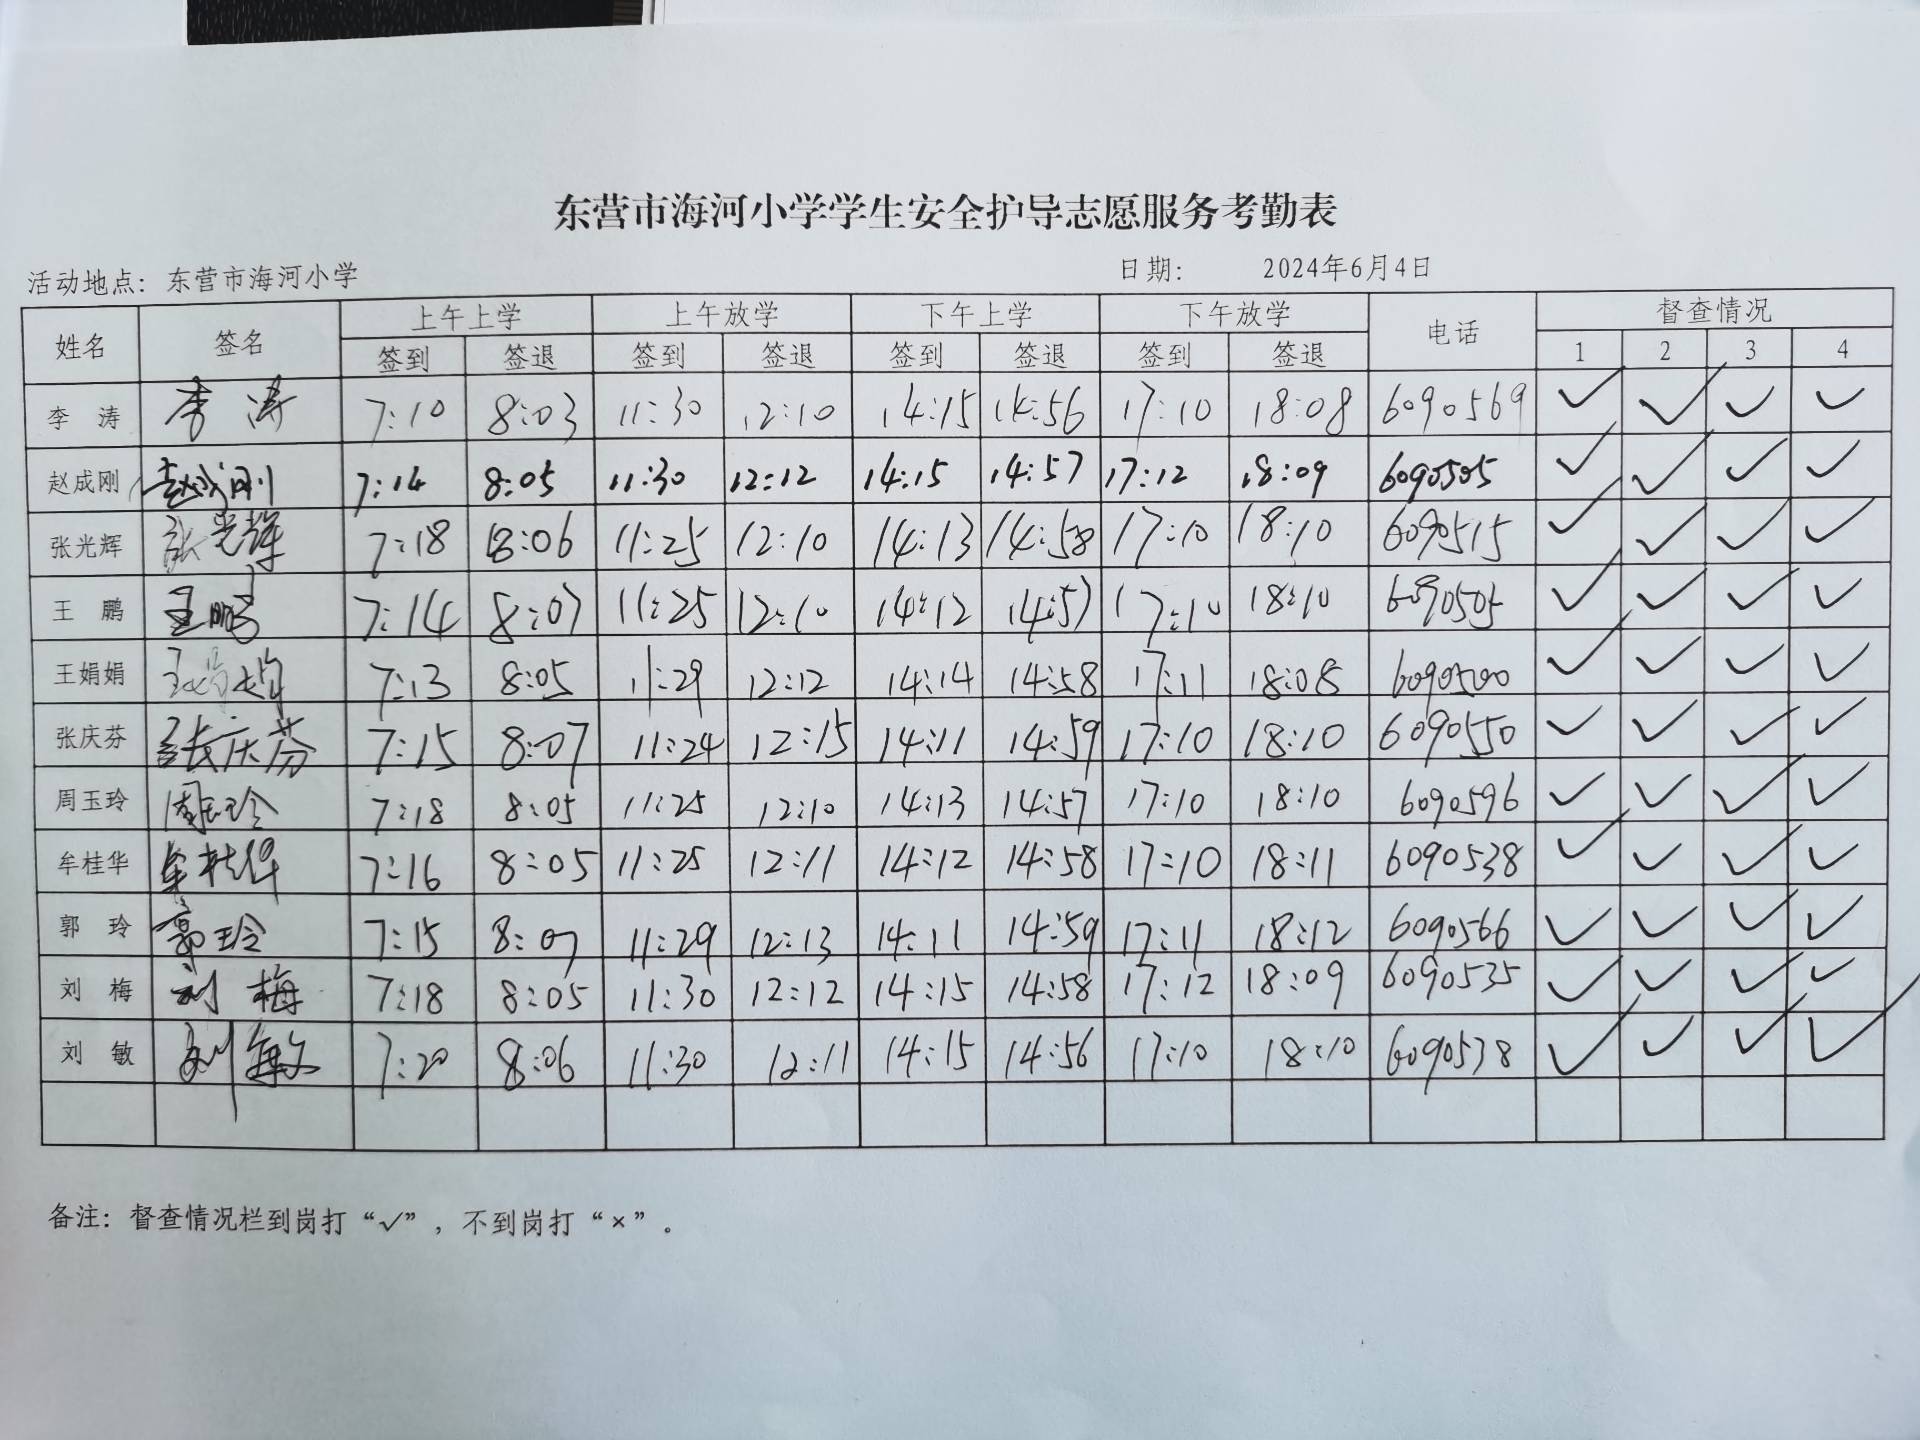 东营市海河小学学生安全护导志愿服务考勤表
活动地点: 东营市海河小学 日期: 2024年6月4日
姓名 签名 上午上学 上午放学 下午上学 下午放学 电话 督查情况
签到 签退 签到 签退 签到 签退 签到 签退 1 2 3 4
李 涛 李 涛 7:10 8:03 11:30 12:10 14:15 14:56 17:10 18:08 6090569 ✓ ✓ ✓ ✓
赵成刚 赵成刚 7:14 8:05 11:30 12:12 14:15 14:57 17:12 18:09 6090505 ✓ ✓ ✓ ✓
张光辉 张光辉 7:18 8:06 11:25 12:10 14:13 14:58 17:10 18:10 6090515 ✓ ✓ ✓ ✓
王 鹏 王鹏 7:14 8:07 11:25 12:10 14:12 14:57 17:10 18:10 6090505 ✓ ✓ ✓ ✓
王娟娟 王娟娟 7:13 8:05 11:29 12:12 14:14 14:58 17:11 18:08 6090500 ✓ ✓ ✓ ✓
张庆芬 张庆芬 7:15 8:07 11:24 12:15 14:11 14:59 17:10 18:10 6090550 ✓ ✓ ✓ ✓
周玉玲 周玉玲 7:18 8:05 11:25 12:10 14:13 14:57 17:10 18:10 6090596 ✓ ✓ ✓ ✓
牟桂华 牟桂华 7:16 8:05 11:25 12:11 14:12 14:58 17:10 18:11 6090538 ✓ ✓ ✓ ✓
郭 玲 郭玲 7:15 8:07 11:29 12:13 14:11 14:59 17:11 18:12 6090566 ✓ ✓ ✓ ✓
刘 梅 刘 梅 7:18 8:05 11:30 12:12 14:15 14:58 17:12 18:09 6090535 ✓ ✓ ✓ ✓
刘 敏 刘 敏 7:20 8:06 11:30 12:11 14:15 14:56 17:10 18:10 6090538 ✓ ✓ ✓ ✓
备注: 督查情况栏到岗打“✓”, 不到岗打“×”。